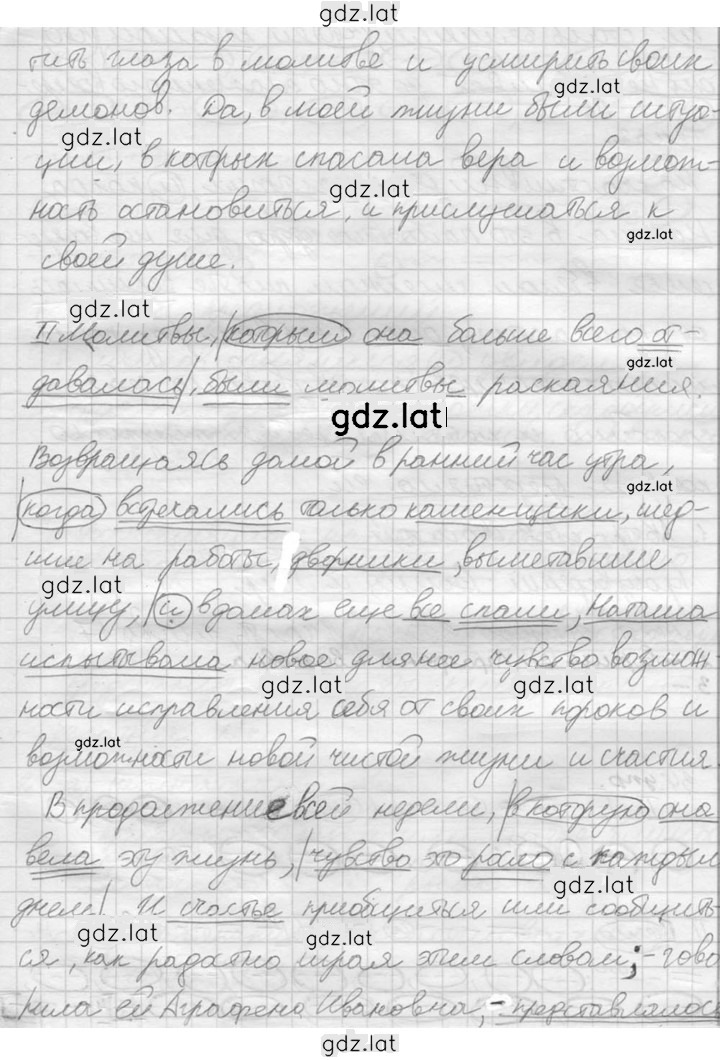 gdz.lat
тить глаза в молитве и усмирить своих
gdz.lat
демонов. Да, в моей жизни были ситуа-
gdz.lat
ции, в котрых спасала вера и возмож-
gdz.lat
ность остановиться, и прислушаться к
gdz.lat
своей душе.
gdz.lat
II Молитвы, которым она больше всего от-
gdz.lat
давалось, были молитвы раскаяния.
gdz.lat
Возвращаясь домой в ранний час утра,
gdz.lat
когда встречались только каменщики, шед-
шие на работы, дворники, выметавшие
gdz.lat
улицу, и в домах еще все спали, Наташа
испытывала новое для нее чувство возмож
gdz.lat gdz.lat
ности исправления себя от своих пороков и
gdz.lat
возможности новой чистой жизни и счастия.
В продолжение всей недели, в которую она
вела эту жизнь, чувство это росло с каждым
gdz.lat
днем. И счастье приобщиться или сообщить-
gdz.lat gdz.lat
ся, как радостно играя этим словом, - гово
рила ей Аграфена Ивановна, - представлялось
gdz.lat